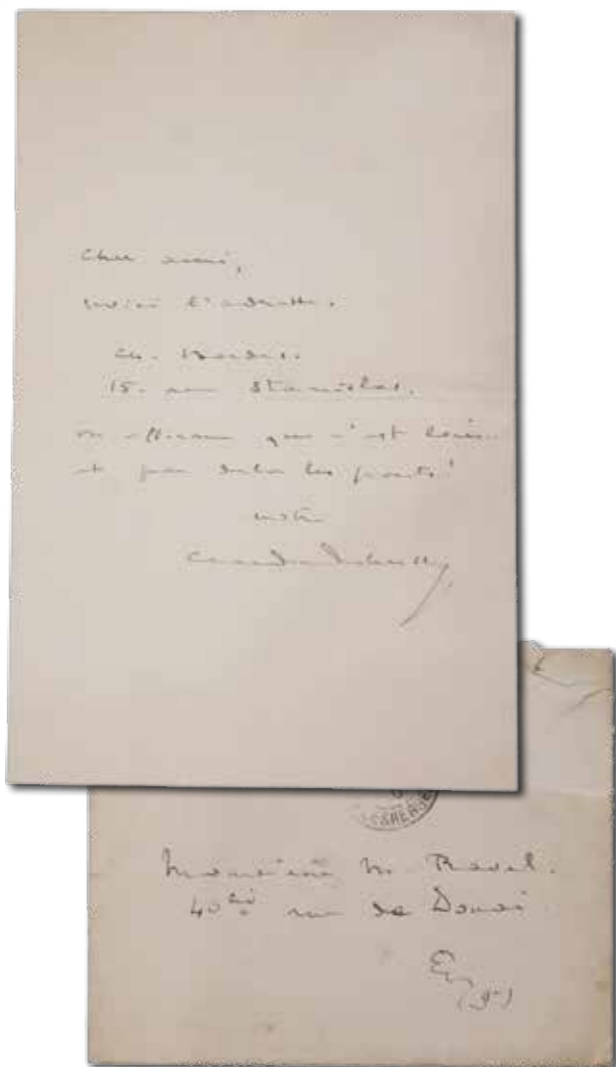 Cher ami,
voici l'adresse.
Ch. Bordes.
15. rue Stanislas.
on que c'est
et par les ponts!
votre
Claude Debussy
Monsieur M. Ravel.
40 bis rue de Douai
E/V (9e)